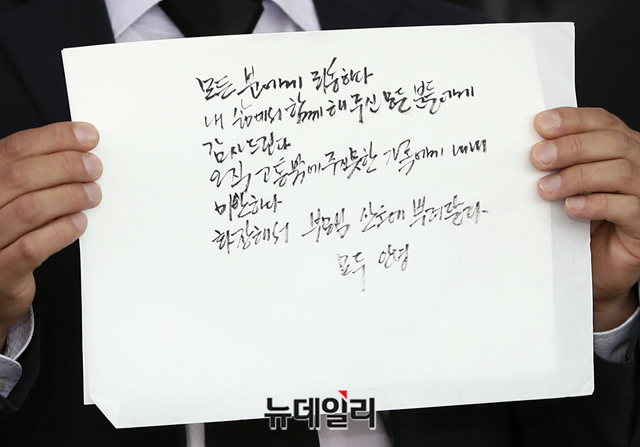 모든 분에게 죄송하다
내 삶에서 함께해주신 모든 분들에게
감사드린다
오직 고통밖에 주지 못한 가족에게 내내
미안하다
화장해서 부모님 산소에 뿌려달라
모두 안녕
뉴데일리